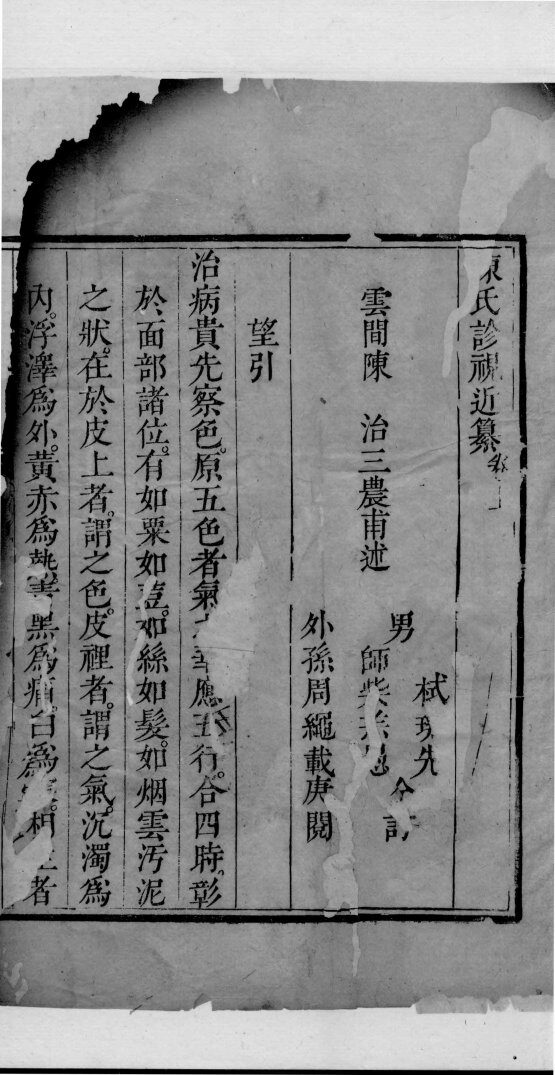 陳氏診視近纂卷上
雲間陳　治三農甫述
男　栻現先
師柴
仝訂
外孫周繩載庚閱
望引
治病貴先察色。原五色者氣之華。應五行。合四時。彰
於面部諸位。有如粟如荳。如絲如髮。如烟雲汚泥
之狀。在於皮上者。謂之色。皮裡者。謂之氣。沉濁爲
內。浮澤爲外。黃赤爲熱。靑黑爲痛。白爲寒。相生者